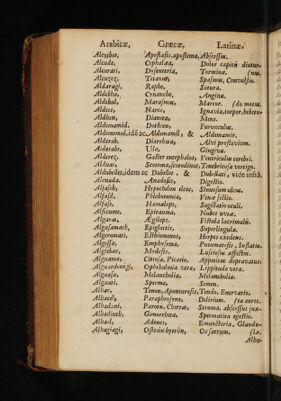 Arabicæ, Græcæ, Latinæ.
Alcusbot, Apostasis, apostema, Abscessus.
Alcude, Cephalæa, Dolor capitis diutur-
Alcurati, Dysenteria, Tormina. (nus.
Alcuzez, Tetanus, Spasmus, Convulsio.
Aldaragi, Raphe, Sutura.
Aldebha, Cynanche, Angina.
Aldebul, Marasmus, Marcor. (do motus.
Aldect, Narce, Ignavia, torpor, hebetu-
Aldhen, Dianœa, Mens.
Aldemamil, Dothien, Furunculus.
Aldemomul, idẽ ac Aldemamil, & Aldemamir.
Alderab, Diarrhœa, Alvi profluvium.
Alderabe, Ula, Gingiva.
Alderez, Gaster encephalos, Ventriculus cerebri.
Alduar, Scotoma, scotodinos, Tenebricosa vertigo.
Aldubellet, idem ac Dubellet, & Dubellati, vide infrà.
Alenada, Anadosis, Digestio.
Alfasch, Hypochdon elcos, Sinuosum ulcus.
Alfasd, Phlebotomia, Venæ sectio.
Alfase, Hæmalops, Sugillatio oculi.
Alficume, Epicauma, Nubes uvea.
Algarae, Ægilops, Fistula lacrimalis.
Algasamach, Epiglottis, Superlingula.
Algeromati, Esthiomenos, Herpes exedens.
Algessa, Emphysema, Pneumatosis, Inflatio.
Algiebar, Mydesis, Lusciosus affectus.
Alguamo, Citosia, Picatio, Appetitus depravatus.
Alguaderagi, Ophthalmia vera, Lippitudo vera.
Alguasa, Melancholia, Melancholia.
Alguati, Sperma, Semen.
Alhac, Tenon, Aponeurosis, Tendo, Enervatio.
Alhacef, Paraphrosyne, Delirium. (ta aures.
Alhadani, Parotis, Choeras, Struma, abscessus jux-
Alhadiath, Gonorrhœa, Spermatica egestio.
Alhad, Adenes, Emunctoria, Glandu-
Alhagiagi, Ostoün hyerōn, Os sacrum. (læ.
Alha-